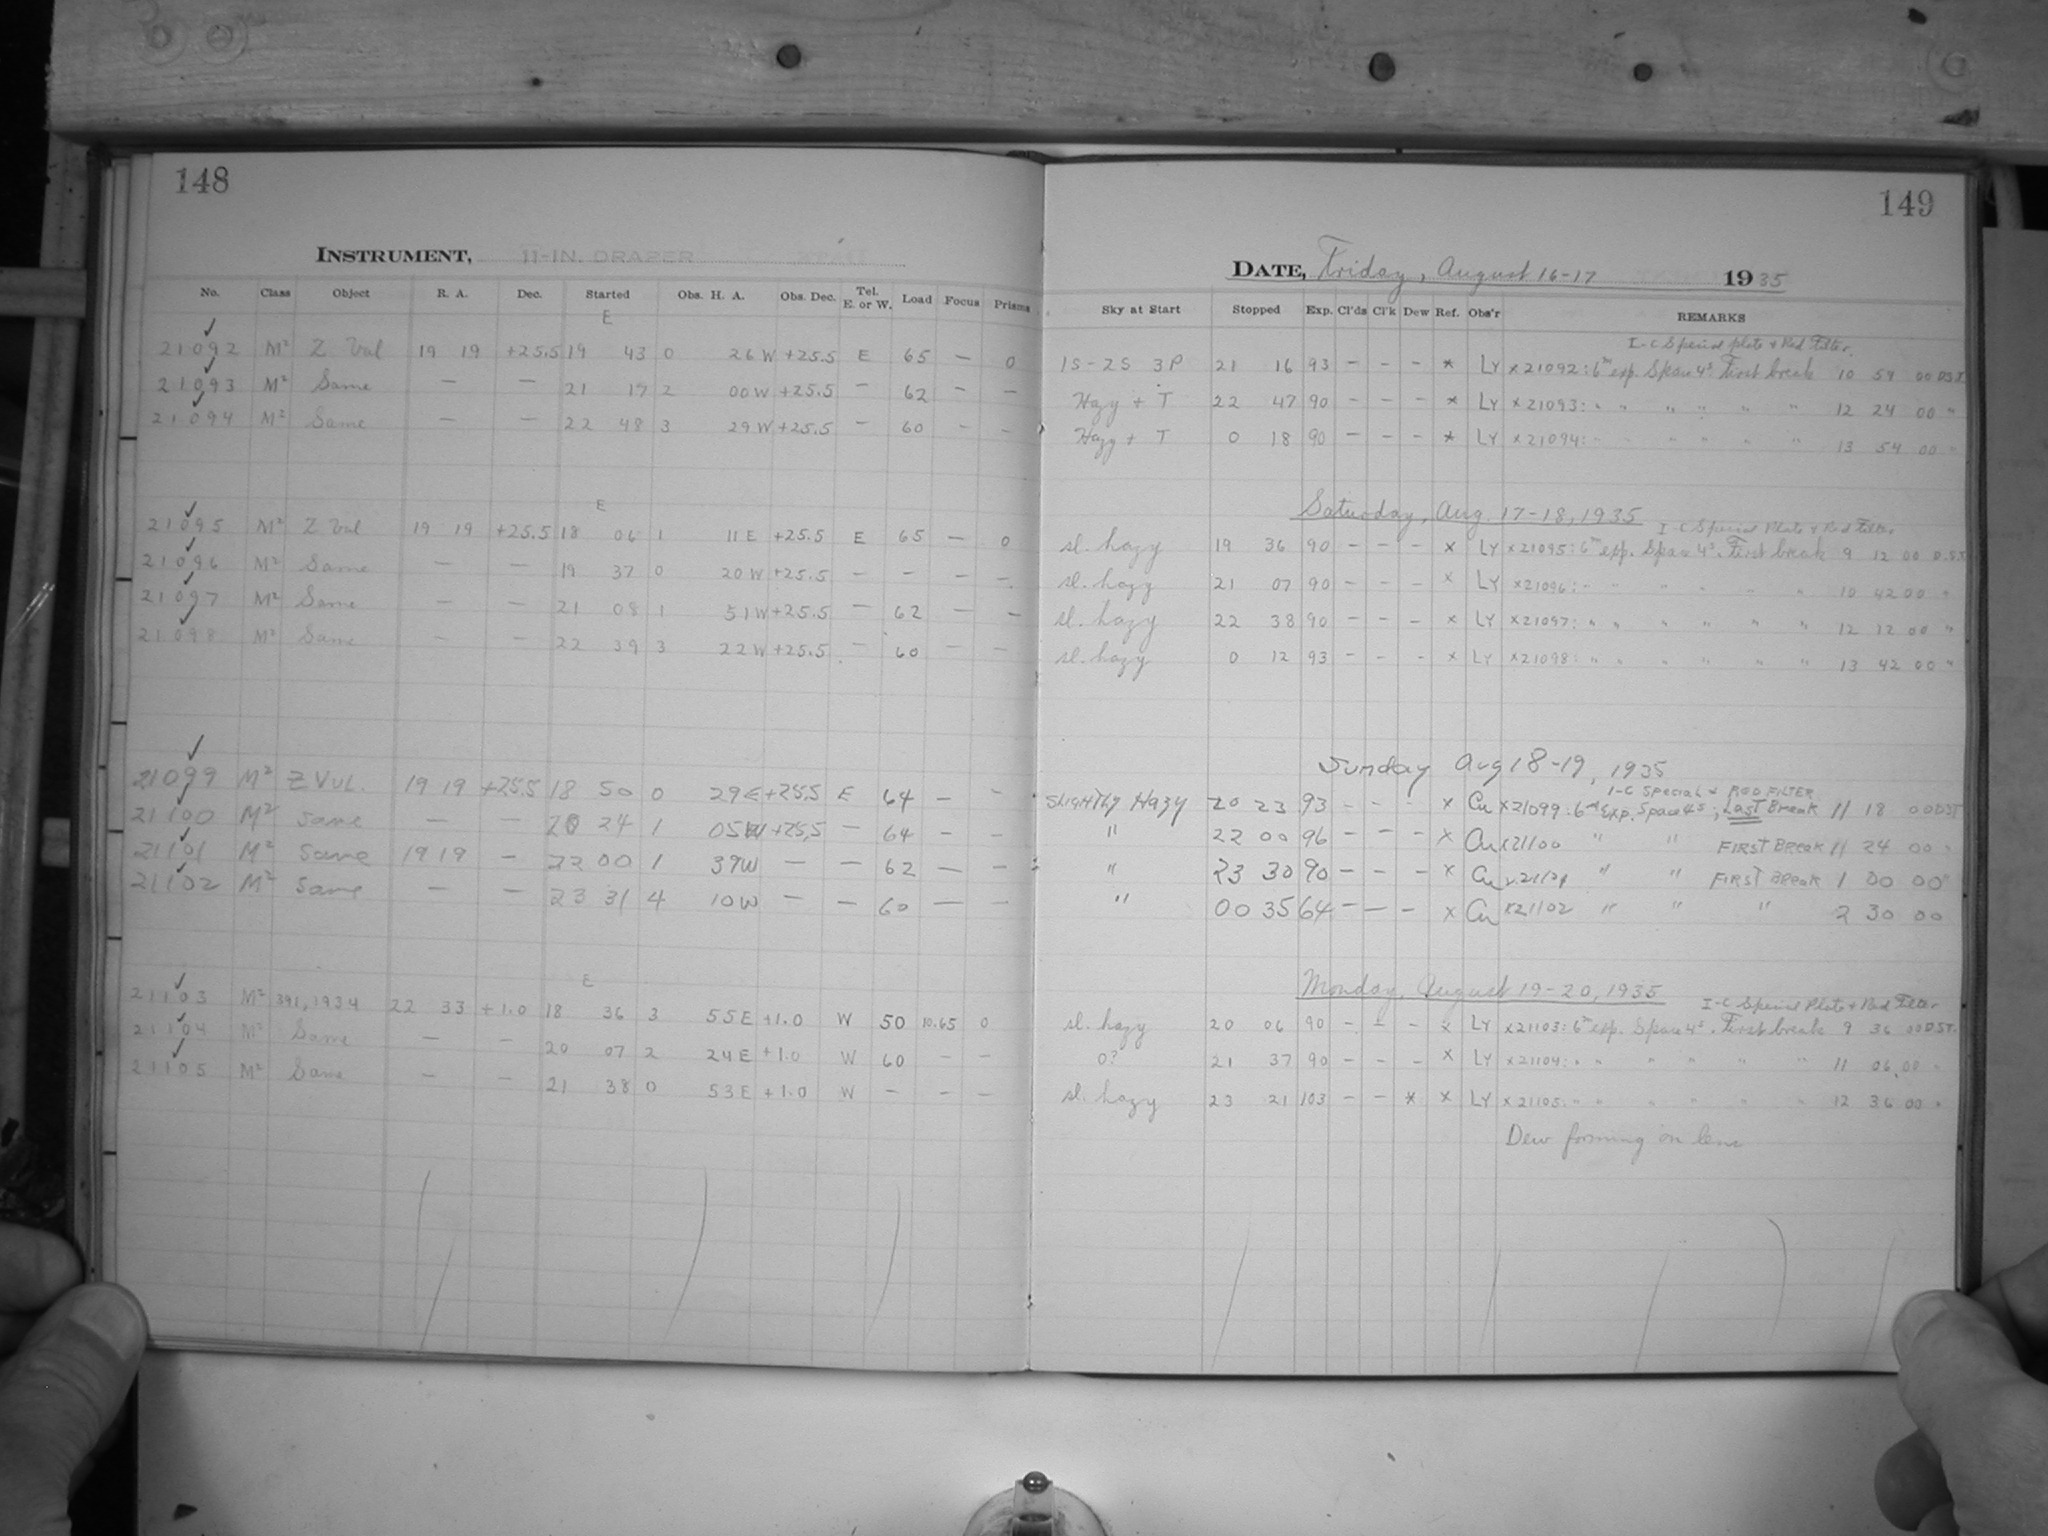 148
INSTRUMENT, 11-IN. DRAPER
No. Class Object R. A. Dec. Started Obs. H. A. Obs. Dec. Tel. E. or W. Load Focus Prisms
E
21092 M² Z Vul 19 19 +25.5 19 43 0 26 W +25.5 E 65 — 0
21093 M² Same — — 21 17 2 00 W +25.5 — 62 — —
21094 M² Same — — 22 48 3 29 W +25.5 — 60 — —
E
21095 M² Z Vul 19 19 +25.5 18 06 1 11 E +25.5 E 65 — 0
21096 M² Same — — 19 37 0 20 W +25.5 — — — —
21097 M² Same — — 21 08 1 51 W +25.5 — 62 — —
21098 M² Same — — 22 39 3 22 W +25.5 — 60 — —
21099 M² Z VUL. 19 19 +25.5 18 50 0 29 E +25.5 E 64 — —
21100 M² Same — — 20 24 1 05 W +25.5 — 64 — —
21101 M² Same 19 19 — 22 00 1 39 W — — 62 — —
21102 M² Same — — 23 31 4 10 W — — 60 — —
E
21103 M² 391,1934 22 33 +1.0 18 36 3 55 E +1.0 W 50 10.65 0
21104 M² Same — — 20 07 2 24 E +1.0 W 60 — —
21105 M² Same — — 21 38 0 53 E +1.0 W — — —
149
DATE, Friday, August 16-17 1935
Sky at Start Stopped Exp. Cl'ds Cl'k Dew Ref. Obs'r REMARKS
I-C Special plate & Red Filter
1S-2S 3P 21 16 93 — — — * LY x21092: 6 exp. Space 4ˢ. First break 10 54 00 D.S.T.
Hazy + T 22 47 90 — — — * LY x21093: " " " " " " 12 24 00 "
Hazy + T 0 18 90 — — — * LY x21094: " " " " " " 13 54 00 "
Saturday, Aug. 17-18, 1935
I-C Special Plate & Red Filter
sl. hazy 19 36 90 — — — x LY x21095: 6 exp. Space 4ˢ. First break 9 12 00 D.S.T.
sl. hazy 21 07 90 — — — x LY x21096: " " " " " 10 42 00 "
sl. hazy 22 38 90 — — — x LY x21097: " " " " " " 12 12 00 "
sl. hazy 0 12 93 — — — x LY x21098: " " " " " " 13 42 00 "
Sunday Aug 18-19, 1935
I-C Special & RED FILTER
Slightly Hazy 20 23 93 — — - x Cu x21099: 6 Exp. Space 4ˢ; Last Break 11 18 00 DST
" 22 00 96 — — — x Cu x21100 " " FIRST Break 11 24 00 "
" 23 30 90 — — — x Cu " " FIRST Break 1 00 00 "
" 00 35 64 — — — x Cu x21102 " " " 2 30 00
Monday, August 19-20, 1935
I-C Special Plate & Red Filter
sl. hazy 20 06 90 — — — x LY x21103: 6 exp. Space 4ˢ. First break 9 36 00 D.S.T.
0? 21 37 90 — — — x LY x21104: " " " " " " 11 06 00 "
sl. hazy 23 21 103 — — * x LY x21105: " " " " " " 12 36 00 "
Dew forming on lens